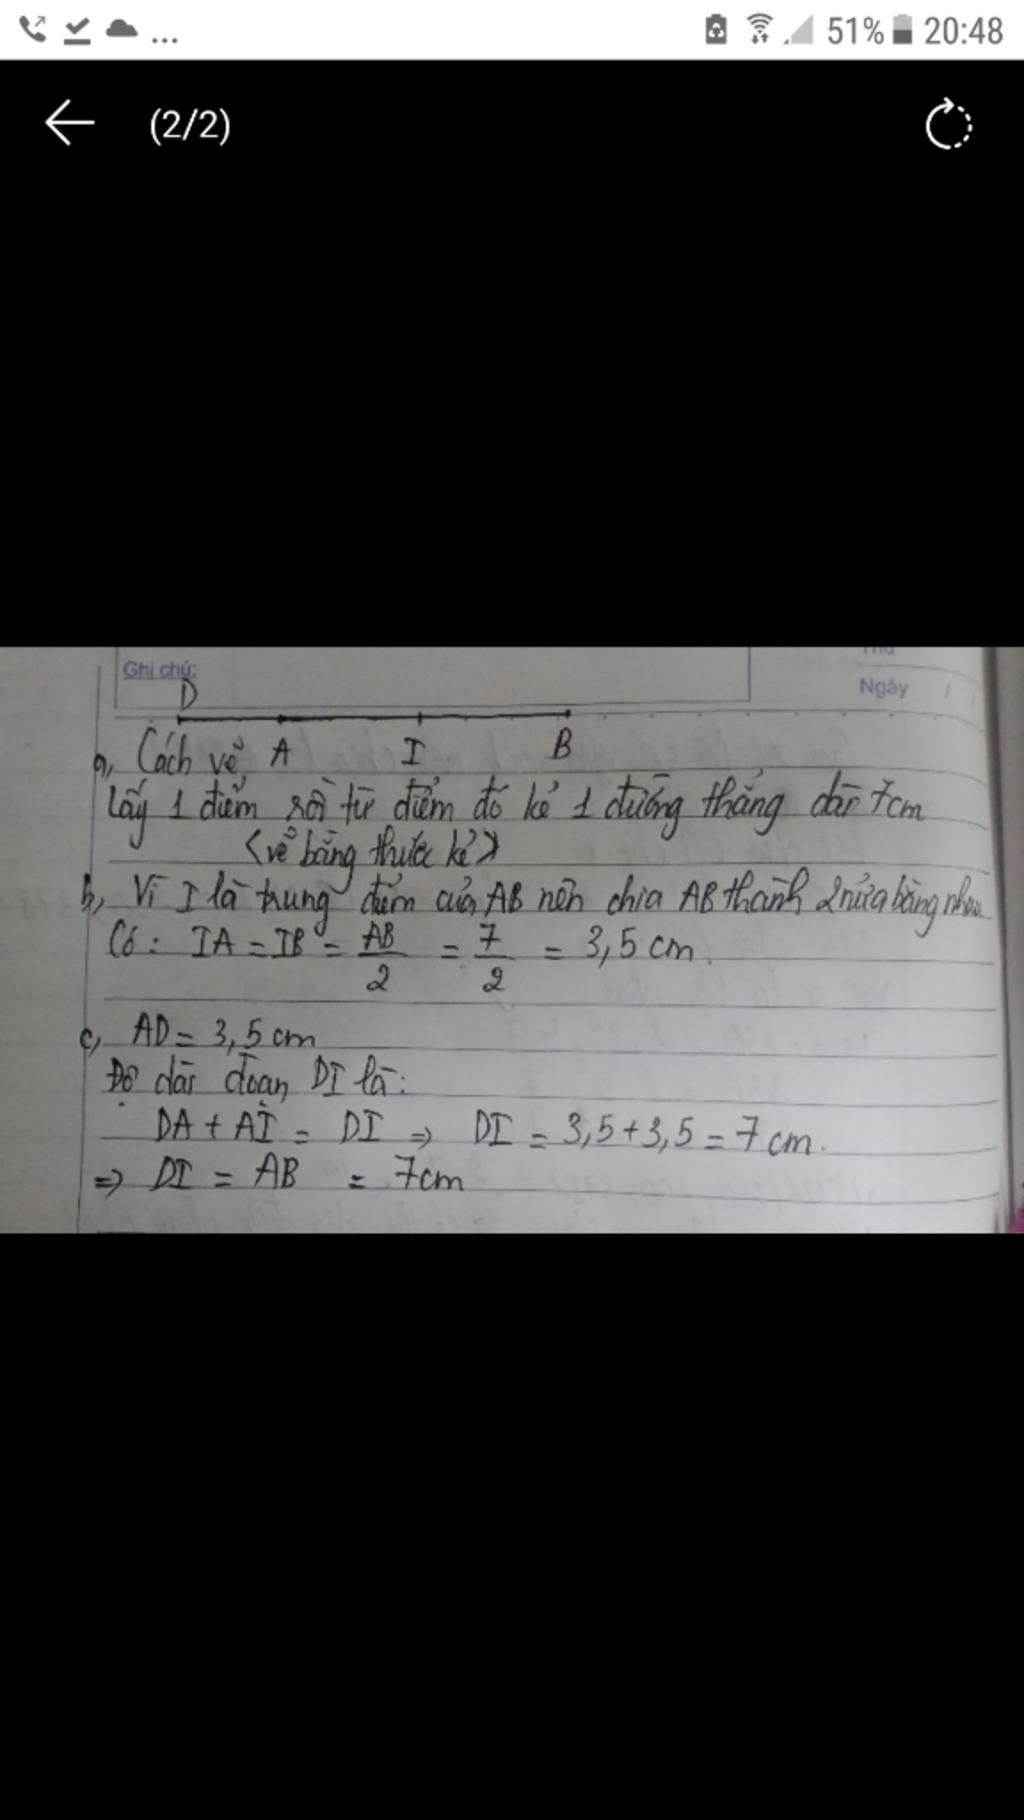 51% 20:48
(2/2)
Ghi chú:
Ngày
D
A I B
a, Cách vẽ
Lấy 1 điểm rồi từ điểm đó kẻ 1 đường thẳng dài 7cm
<vẽ bằng thước kẻ>
b, Vì I là trung điểm của AB nên chia AB thành 2 nửa bằng nhau
Có: IA = IB = AB/2 = 7/2 = 3,5 cm.
c, AD = 3,5 cm
Độ dài đoạn DI là:
DA + AI = DI => DI = 3,5 + 3,5 = 7 cm.
=> DI = AB = 7cm